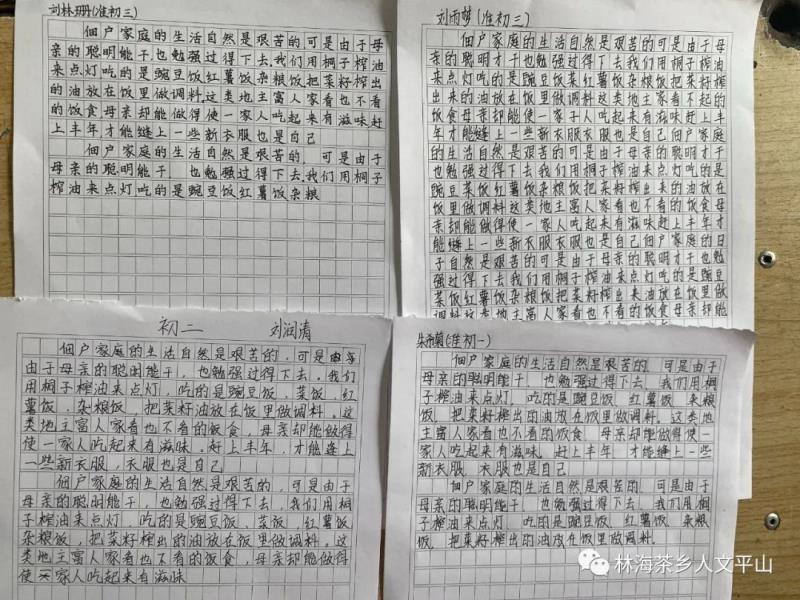 刘林珊(准初三)
佃户家庭的生活自然是艰苦的,可是由于母
亲的聪明能干,也勉强过得下去,我们用桐子榨油
来点灯,吃的是豌豆饭红薯饭杂粮饭,把菜籽榨出
的油放在饭里做调料,这类地主富人家看也不看
的饭食母亲却能做得使一家人吃起来有滋味,赶
上半年才能缝上一些新衣服也是自己
佃户家庭的生活自然是艰苦的,可是由于
母亲的聪明能干,也勉强过得下去,我们用桐子
榨油来点灯吃的是豌豆饭红薯饭杂粮
刘雨梦(准初三)
佃户家庭的生活自然是艰苦的可是由于母
亲的聪明才干也勉强过得下去我们用桐子榨油
来点灯吃的是豌豆菜红薯饭杂粮饭把菜籽榨
出来的油放在饭里做调料这类地主家看不起的
饭食母亲却能使一家子人吃起来有滋味赶上半
年才能缝上一些新衣服衣服也是自己佃户家庭
的生活自然是艰苦的可是由于母亲的聪明才干
也勉强过得下去我们用桐子榨油来点灯吃的是
豌豆菜饭红薯饭杂粮饭把菜籽榨出来的油放在
饭里做调料这类地主富人家看也不看的饭食母
亲却能做得使一家人吃起来有滋味赶上半年才
能缝上一些新衣服衣服也是自己佃户家庭的日
子自然是艰苦的可是由于母亲的聪明才干也勉
强过得下去我们用桐子榨油来点灯吃的是豌豆
菜饭红薯饭杂粮饭把菜籽榨出来的油放在饭里
做调料这类地主富人家看也不看的饭食母亲却能
初二 刘润清
佃户家庭的生活自然是艰苦的,可是
由于母亲的聪明能干,也勉强过得下去。我们
用桐子榨油来点灯,吃的是豌豆饭,菜饭,红
薯饭,杂粮饭,把菜籽油放在饭里做调料。这
类地主富人家看也不看的饭食,母亲却能做得
使一家人吃起来有滋味。赶上半年,才能缝上
一些新衣服,衣服也是自己
佃户家庭的生活自然是艰苦的,可是由于
母亲的聪明能干,也勉强过得下去,我们用桐
子榨油来点灯,吃的是豌豆饭,菜饭,红薯饭
杂粮饭,把菜籽榨出的油放在饭里做调料。这
类地主富人家看也不看的饭食,母亲却能做得
使一家人吃起来有滋味
(准初一)
佃户家庭的生活自然是艰苦的,可是由于
母亲的聪明能干,也勉强过得下去,我们用桐
子榨油来点灯,吃的是豌豆饭,红薯饭,杂粮
饭,把菜籽榨出的油放在饭里做调料。这类地
主富人家看也不看的饭食,母亲却能做得使一
家人吃起来有滋味,赶上半年,才能缝上一些
新衣服,衣服也是自己
佃户家庭的生活自然是艰苦的,可是由于
母亲的聪明能干,也勉强过得下去,我们用桐
子榨油来点灯,吃的是豌豆饭,红薯饭,杂粮
饭,把菜籽榨出的油放在饭里做调料。
林海茶乡人文平山